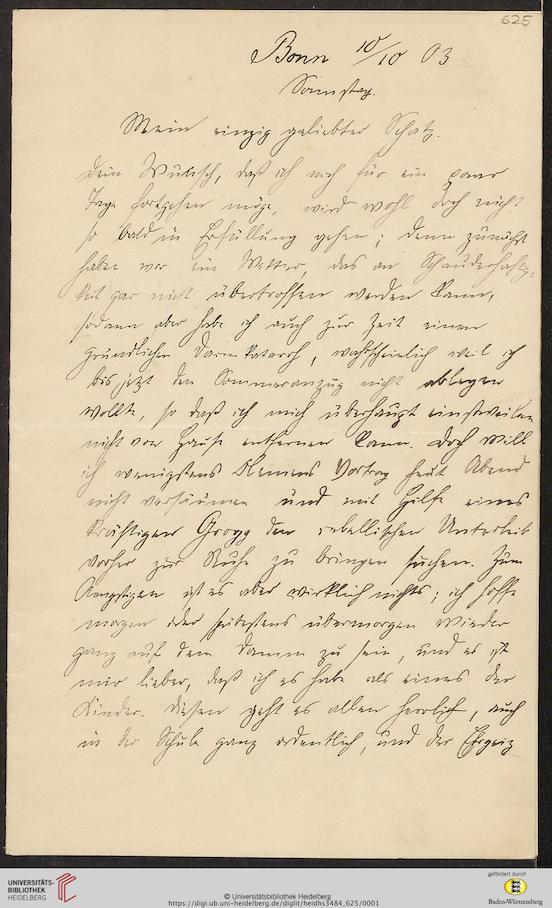 625
Bonn 10/10 03
Samstag.
Mein einzig geliebter Schatz.
Dein Wunsch, daß ich mich für ein paar
Tage fortgehen möge, wird wohl doch nicht
so bald in Erfüllung gehen; denn zunächst
haben wir ein Wetter, das an Schauderhaftig=
keit gar nicht übertroffen werden kann,
sodann aber habe ich auch zur Zeit einen
gründlichen Darmkatarrh, wahrscheinlich weil ich
bis jetzt den Sommeranzug nicht ablegen
wollte, so daß ich mich überhaupt einstweilen
nicht vom Hause entfernen kann. Doch will
ich wenigstens Clemens Vortrag heut Abend
nicht versäumen und mit Hilfe eines
kräftigen Grogg den rebellischen Unterleib
vorher zur Ruhe zu bringen suchen. Zum
Aengstigen ist es aber wirklich nichts; ich hoffe
morgen oder spätestens übermorgen wieder
ganz auf dem Damm zu sein, und es ist
mir lieber, daß ich es habe als eines der
Kinder. Diesen geht es allen herrlich, auch
in der Schule ganz ordentlich, und der Ehrgeiz
UNIVERSITÄTS-
BIBLIOTHEK
HEIDELBERG
© Universitätsbibliothek Heidelberg
https://digi.ub.uni-heidelberg.de/diglit/heidhs3484_625/0001
gefördert durch
Baden-Württemberg